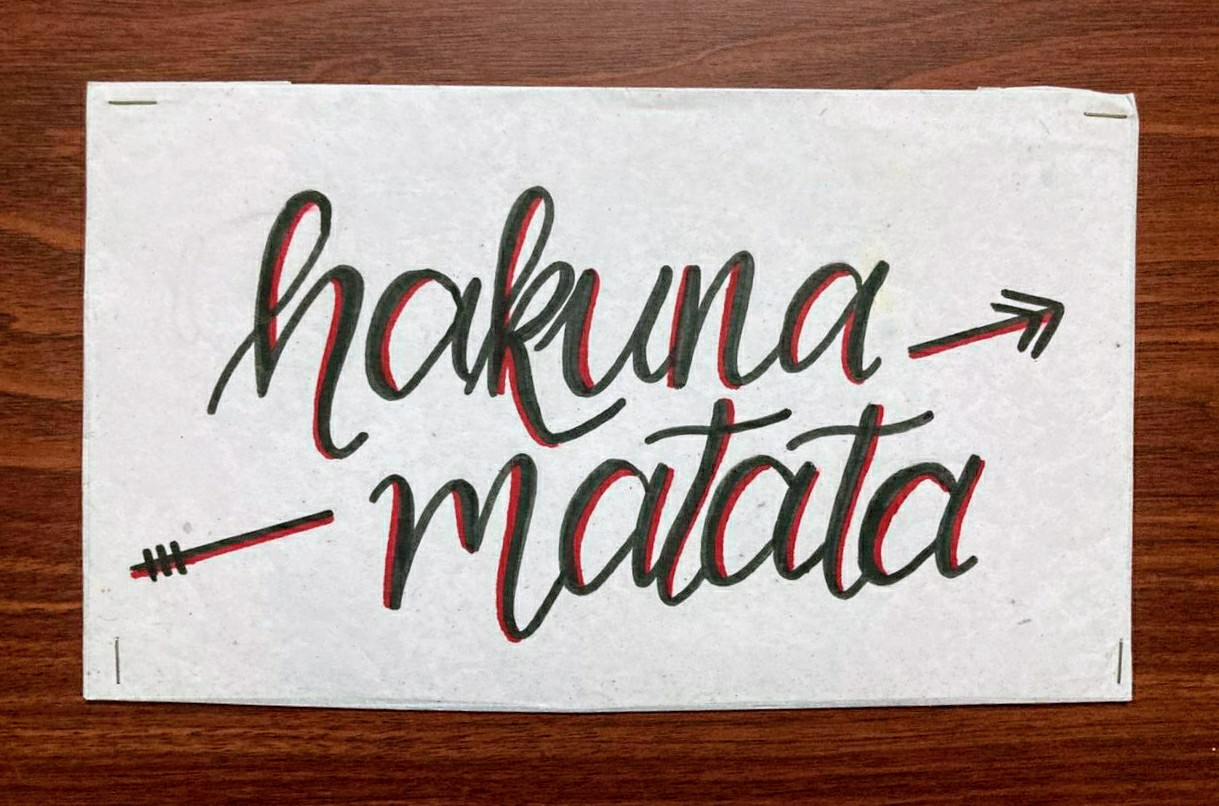 hakuna
matata